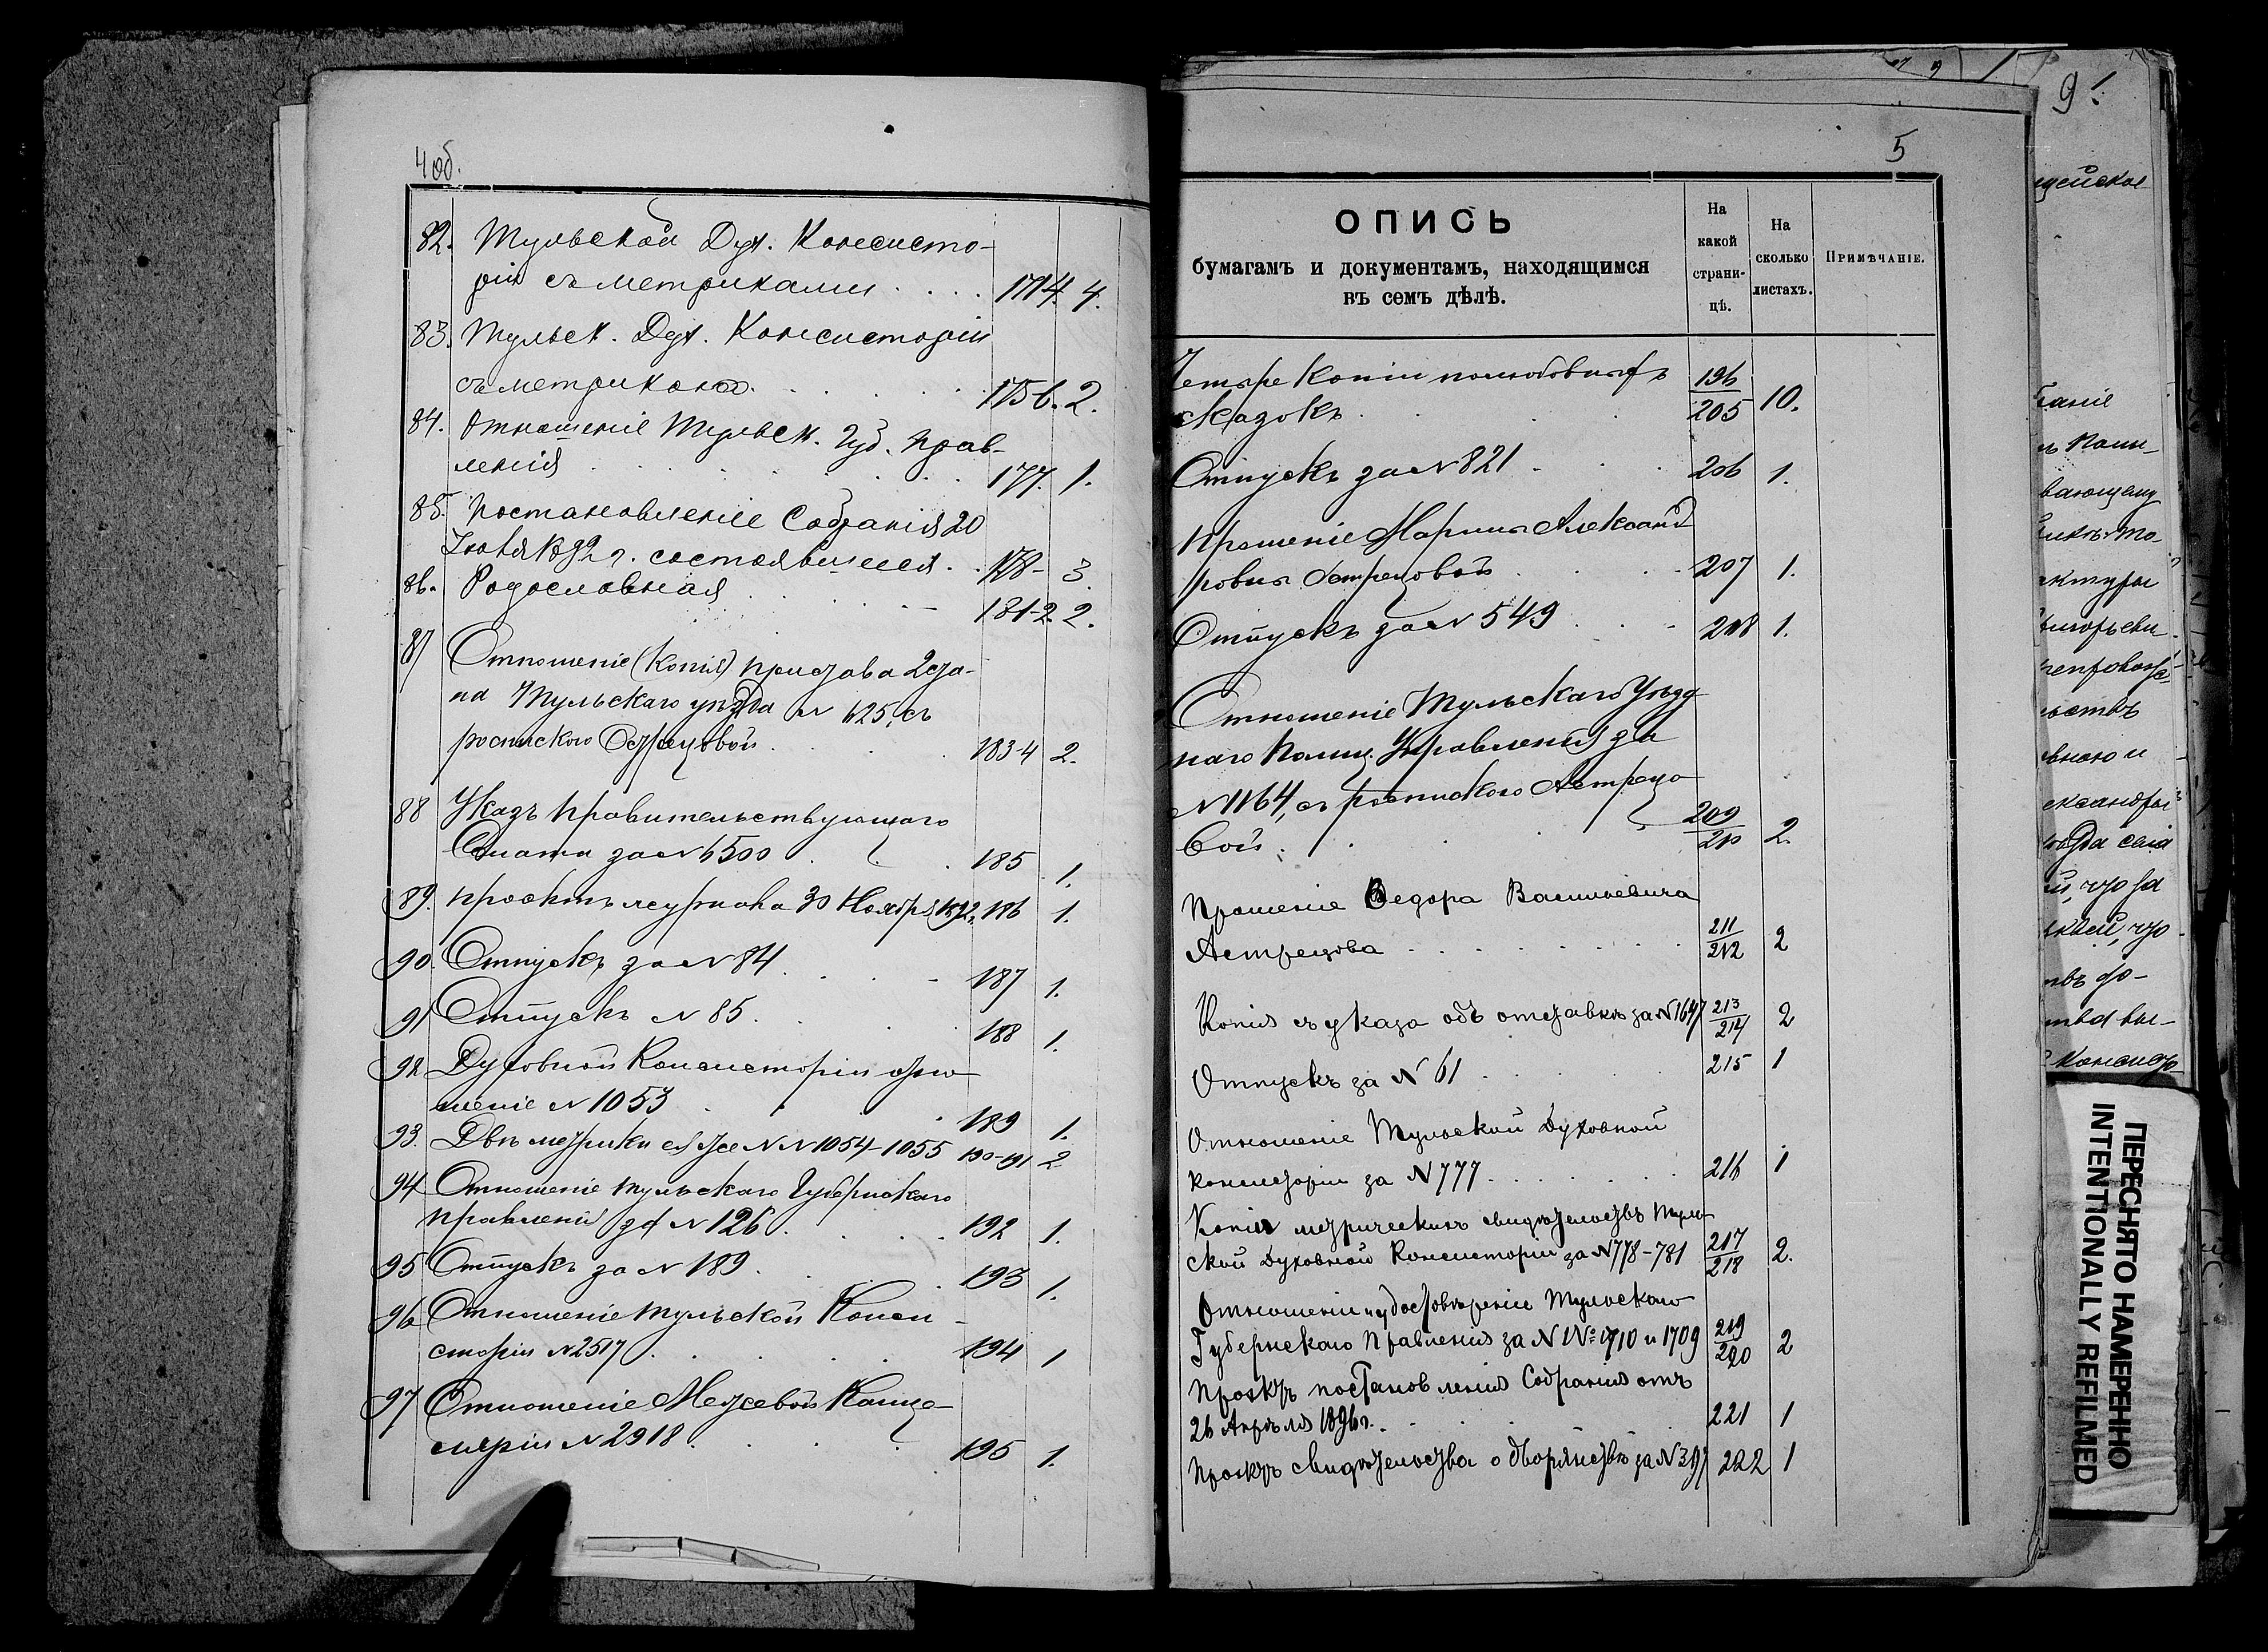 4 об.
82. Тульской Дух. Консисто-
рiи съ метриками . . . . 171-4. 4.
83. Тульск. Дух. Консисторiи
съ метрикою . . . . 175-6. 2.
84. Отношенiе Тульск. Губ. Прав-
ленiя . . . . 177. 1.
85. Постановленiе Собранiя 20
Iюня 1892 г. состоявшееся . . 178- 3.
86. Родословная . . . . 181-2. 2.
87 Отношенiе (копiя) пристава 2 ста-
на Тульскаго уѣзда N 625, съ
роспискою Острецовой . . . 183-4 2.
88 Указъ Правительствующаго
Сената за N 6500 . . . 185 1.
89. Проектъ журнала 30 Ноября 1892 г. 186 1.
90. Отпускъ за N 84 . . . . 187 1.
91 Отпускъ N 85 . . . . 188 1.
92 Духовной Консисторiи отно
шенiе N 1053 . . . . 189 1.
93. Двѣ метрики ея же N N 1054-1055 190-191 2
94 Отношенiе Тульскаго Губернскаго
Правленiя за N 126 . . . . 192 1.
95 Отпускъ за N 189 . . . . 193 1.
96 Отношенiе Тульской Конси-
сторiи N 2517 . . . . 194 1
97 Отношенiе Межевой Канце-
лярiи N 2918 . . . . 195 1.
5
ОПИСЬ
бумагамъ и документамъ, находящимся
въ семъ дѣлѣ.
На какой страни-цѣ.
На сколько листахъ.
Примѣчанiе.
Четыре копiи полюбовныхъ
сказокъ . . . 196/205 10.
Отпускъ за N 821 . . . 206 1.
Прошенiе Марины Александ
ровны Астрецовой . . . 207 1.
Отпускъ за N 549 . . . 208 1.
Отношенiе Тульскаго Уѣзд
наго Полиц. Управленiя за
N 1164, съ роспискою Астрецо
вой . . . 209/210 2.
Прошенiе Ѳедора Васильевича
Астрецова . . . . 211/212 2
Копiя съ указа объ отставкѣ за N 1647 213/214 2
Отпускъ за N 61 . . . . 215 1
Отношенiе Тульской Духовной
консисторiи за N 777 . . . . 216 1
Копiи метрическихъ свидѣтельствъ Туль-
ской Духовной Консисторiи за N 778-781 217/218 2.
Отношенiи и удостовѣренiе Тульскаго
Губернскаго Правленiя за N №: 1710 и 1709 219/220 2
Проэктъ постановленiя Собранiя отъ
26 Апрѣля 1896 г. . . . . 221 1
Проэктъ свидѣтельства о дворянствѣ за N 397 222 1
9!
ПЕРЕСНЯТО НАМЕРЕННО
INTENTIONALLY REFILMED